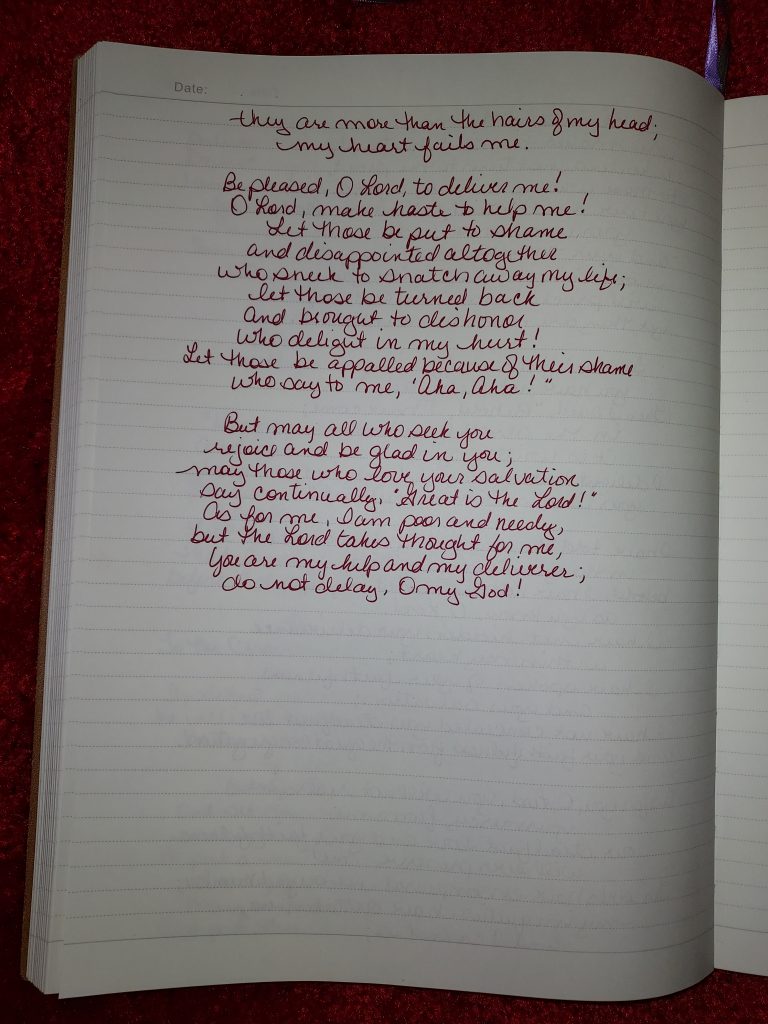 Date:
they are more than the hairs of my head;
my heart fails me.
Be pleased, O Lord, to deliver me!
O Lord, make haste to help me!
Let those be put to shame
and disappointed altogether
who sneek to snatch away my life;
let those be turned back
and brought to dishonor
who delight in my hurt!
Let those be appalled because of their shame
who say to me, "Aha, Aha!"
But may all who seek you
rejoice and be glad in you;
may those who love your salvation
say continually, "Great is the Lord!"
As for me, I am poor and needy,
but the Lord takes thought for me,
You are my help and my deliverer;
do not delay, O my God!